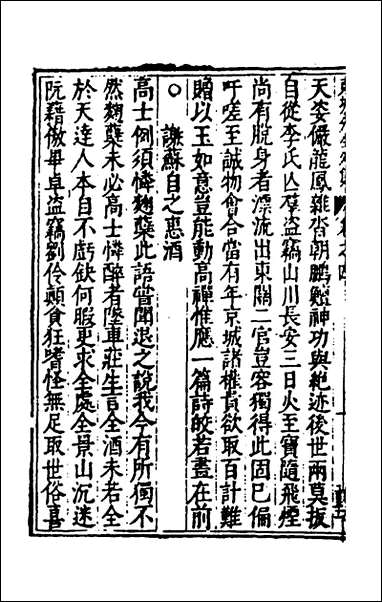 天姿儼龍鳳雜沓朝鵬鱣神功與絶迹後世兩莫扳
自從李氏亾群盗竊山川長安三日火至寶隨飛煙
尚有脫身者漂流出東關二官豈容獨得此固已偏
吁嗟至誠物會合當有年京城諸權貴欲取百計難
贈以玉如意豈能動高禪惟應一篇詩皎若畫在前
○ 謝蘇自之惠酒
高士例須憐麴糵此語嘗聞退之說我今有所獨不
然麴糵未必高士憐醉者墜車莊生言全酒未若全
於天達人本自不虧缺何暇更求全處全景山沉迷
阮籍傲畢卓盗竊劉伶顛貪狂嗜怪無足取世俗喜